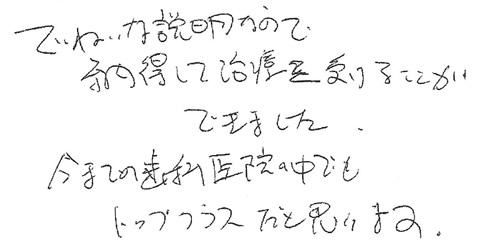 ていねいな説明なので
納得して治療を受けることが
できました.
今までの歯科医院の中でも
トップクラスだと思います.